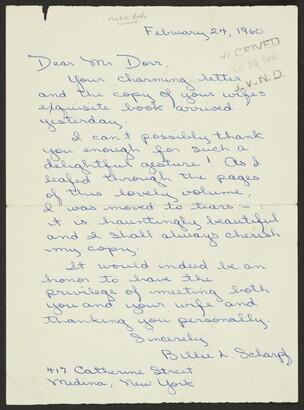 recorded
February 24, 1960
RECEIVED
1960
V.N.D.
Dear Mr Dorr,
Your charming letter
and the copy of your wife's
exquisite book arrived
yesterday.
I can't possibly thank
you enough for such a
delightful gesture! As I
leafed through the pages
of this lovely volume,
I was moved to tears –
it is hauntingly beautiful
and I shall always cherish
my copy.
It would indeed be an
honor to have the
privilege of meeting both
you and your wife and
thanking you personally.
Sincerely
Billie L Scharpf
417 Catherine Street
Medina, New York